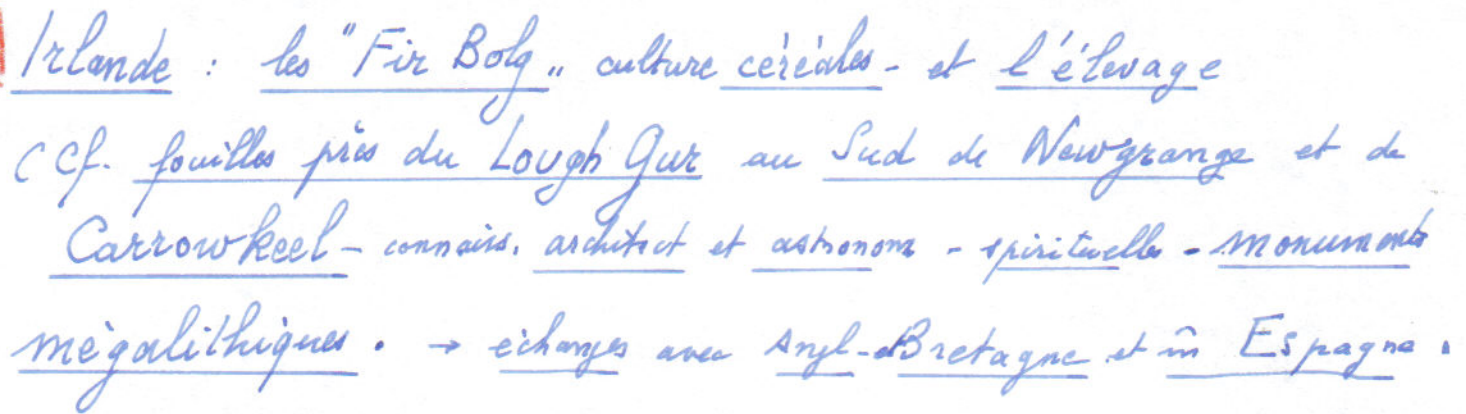 Irlande : les "Fir Bolg" culture céréales - et l'élevage
(Cf. fouilles près du Lough Gur au Sud de Newgrange et de
Carrowkeel - connaiss. architect et astronom - spirituelles - monuments
mégalithiques. → échanges avec Angl - Bretagne et m̂ Espagne.